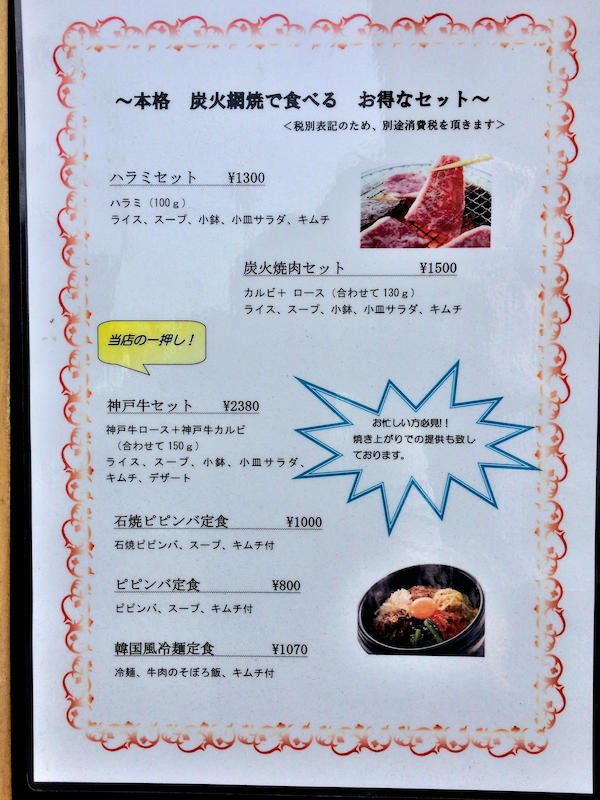 ～本格　炭火網焼で食べる　お得なセット～
＜税別表記のため、別途消費税を頂きます＞
ハラミセット　¥1300
ハラミ（100ｇ）
ライス、スープ、小鉢、小皿サラダ、キムチ
炭火焼肉セット　¥1500
カルビ＋ ロース（合わせて130ｇ）
ライス、スープ、小鉢、小皿サラダ、キムチ
当店の一押し！
神戸牛セット　¥2380
神戸牛ロース＋神戸牛カルビ
（合わせて150ｇ）
ライス、スープ、小鉢、小皿サラダ、
キムチ、デザート
お忙しい方必見!!
焼き上がりでの提供も致し
ております。
石焼ピピンバ定食　¥1000
石焼ピピンバ、スープ、キムチ付
ピピンバ定食　¥800
ピピンバ、スープ、キムチ付
韓国風冷麺定食　¥1070
冷麺、牛肉のそぼろ飯、キムチ付